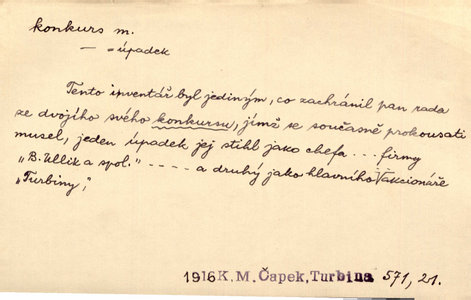 konkurs m.
— = úpadek
Tento inventář byl jediným, co zachránil pan rada
ze dvojího svého konkursu, jímž se současně prokousati
musel, jeden úpadek jej stihl jako chefa . . . firmy
„B. Ullik a spol." - - - - a druhý jako hlavního akcionáře
„Turbiny",
1916 K. M. Čapek, Turbina 571, 21.